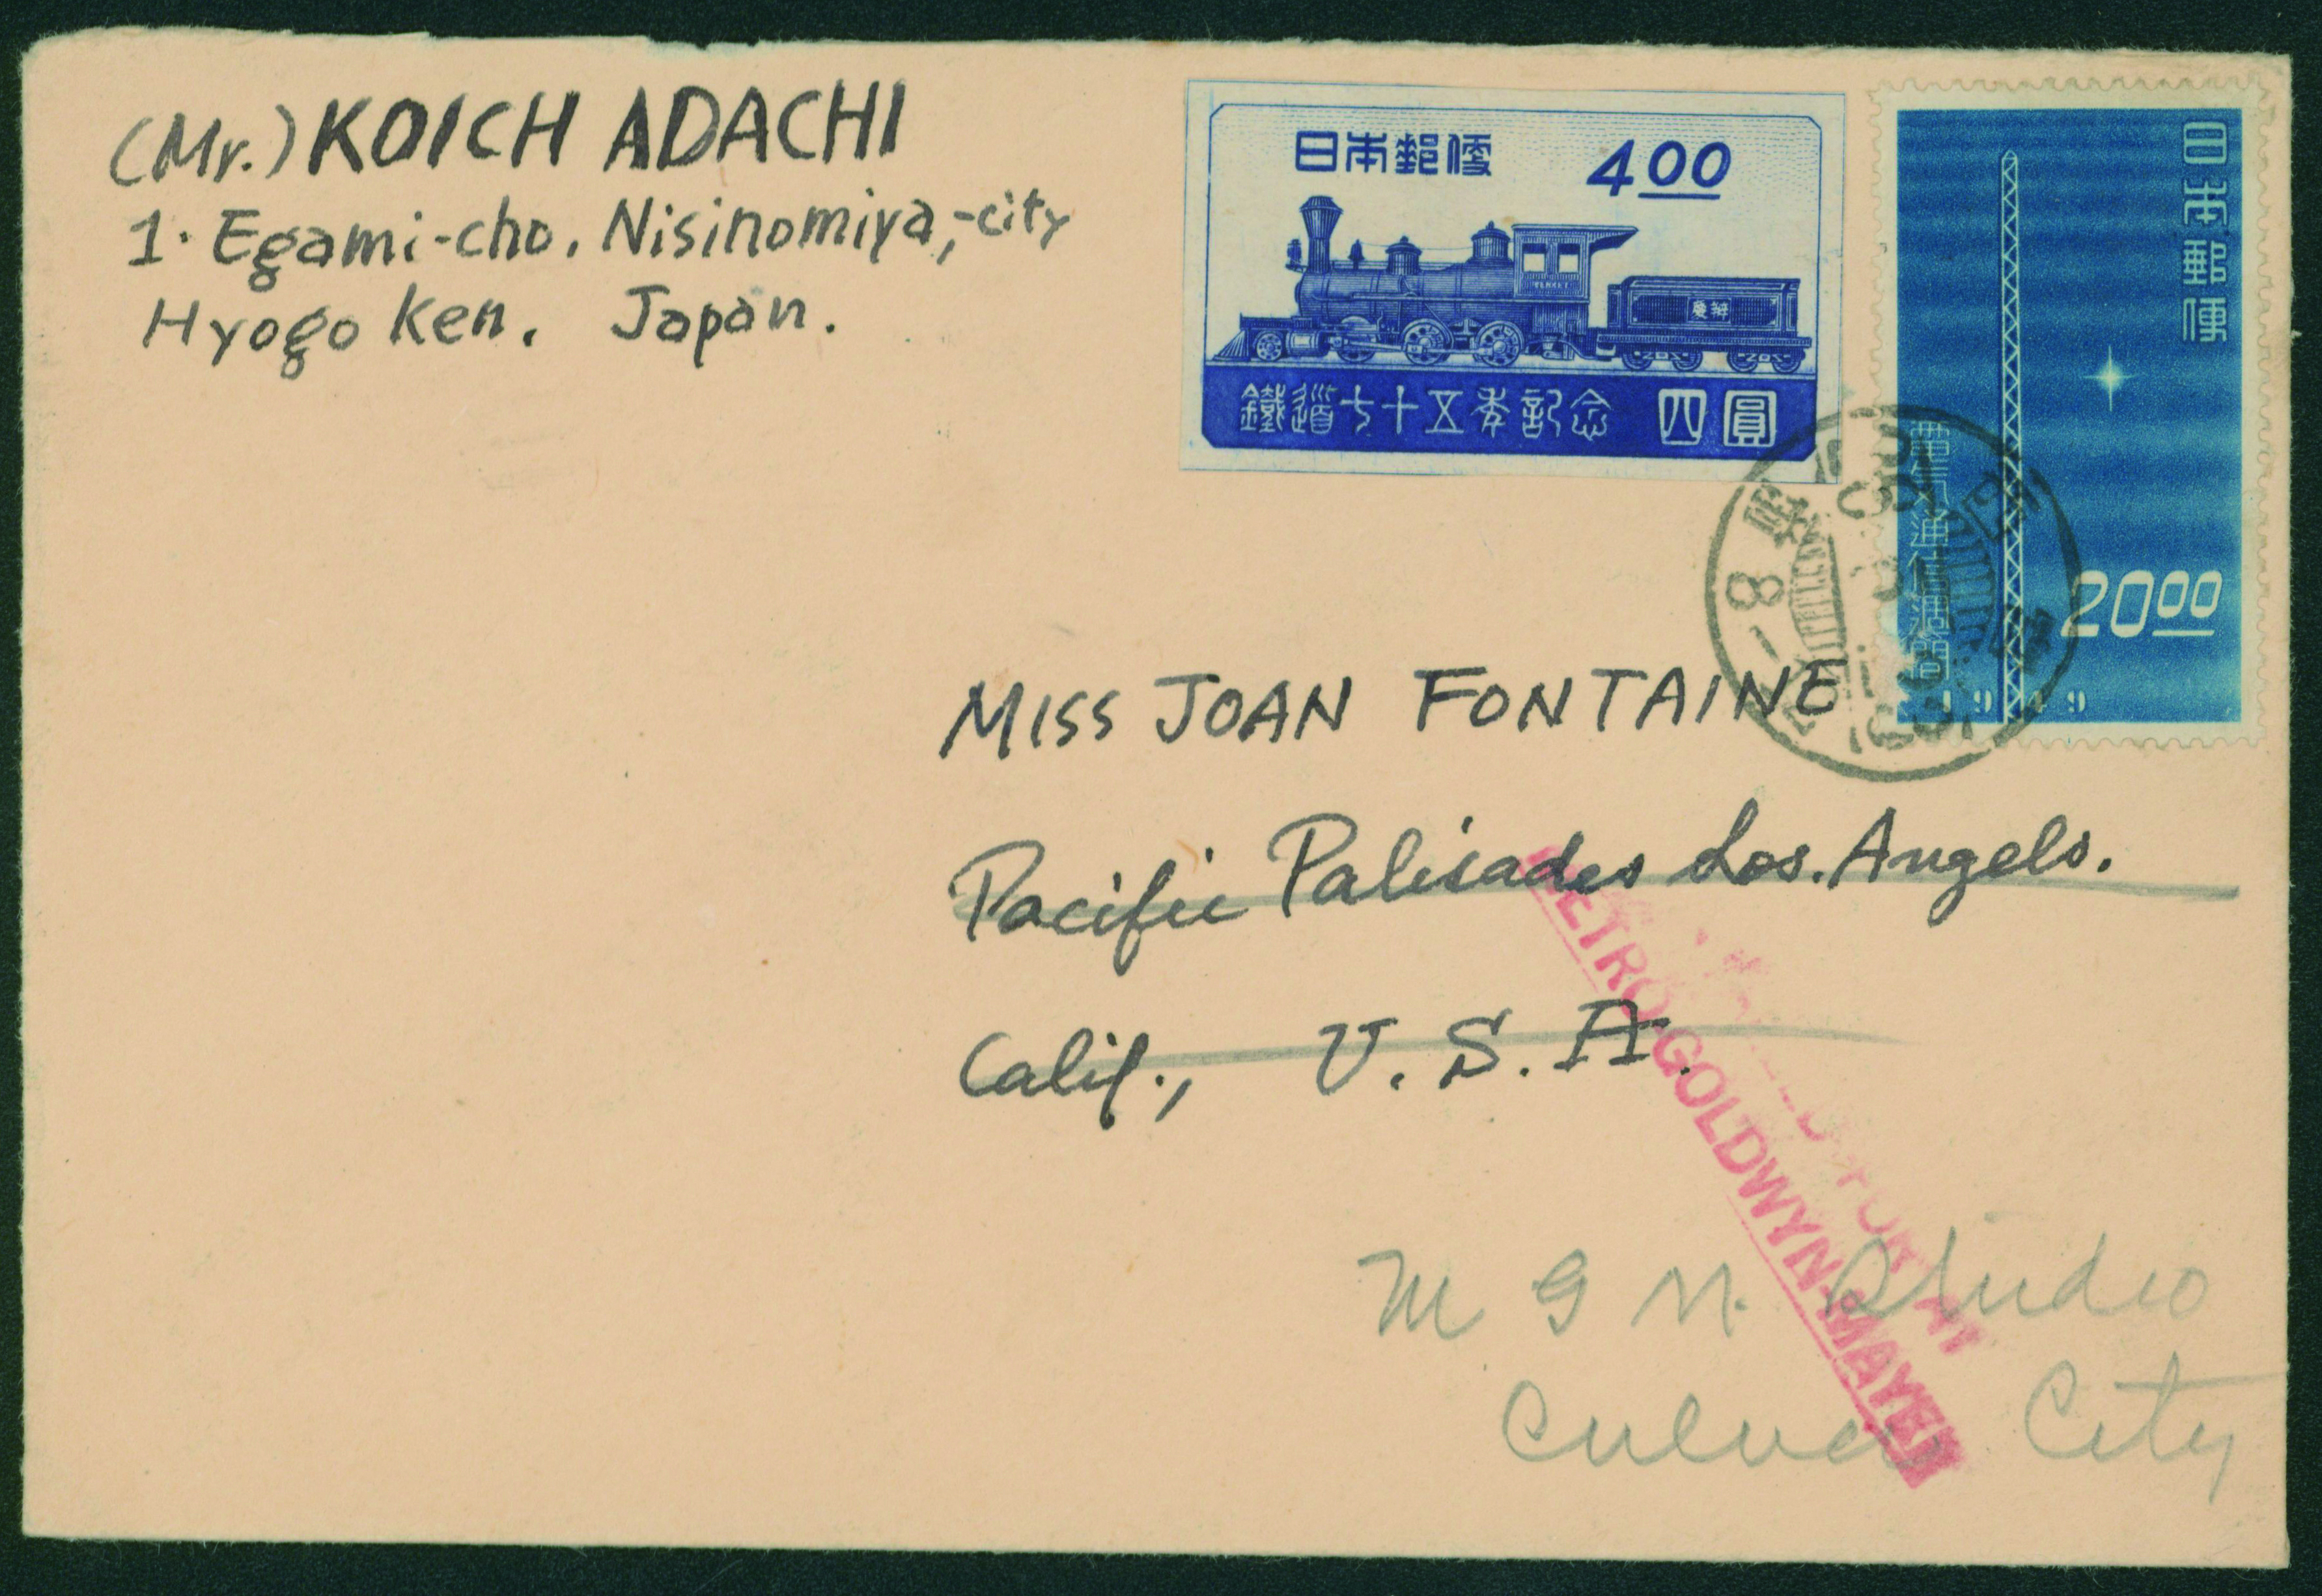 (Mr.) KOICH ADACHI
1. Egami-cho. Nisinomiya,-city
Hyogo Ken. Japan.
日本郵便 4.00
慶辨
鐵道七十五年記念 四圓
日本郵便
電気通信週間
20.00
1949
MISS JOAN FONTAINE
Pacific Palisades Los. Angels.
Calif., U. S. A.
METRO-GOLDWYN-MAYER
M G M. Studio
Culver City